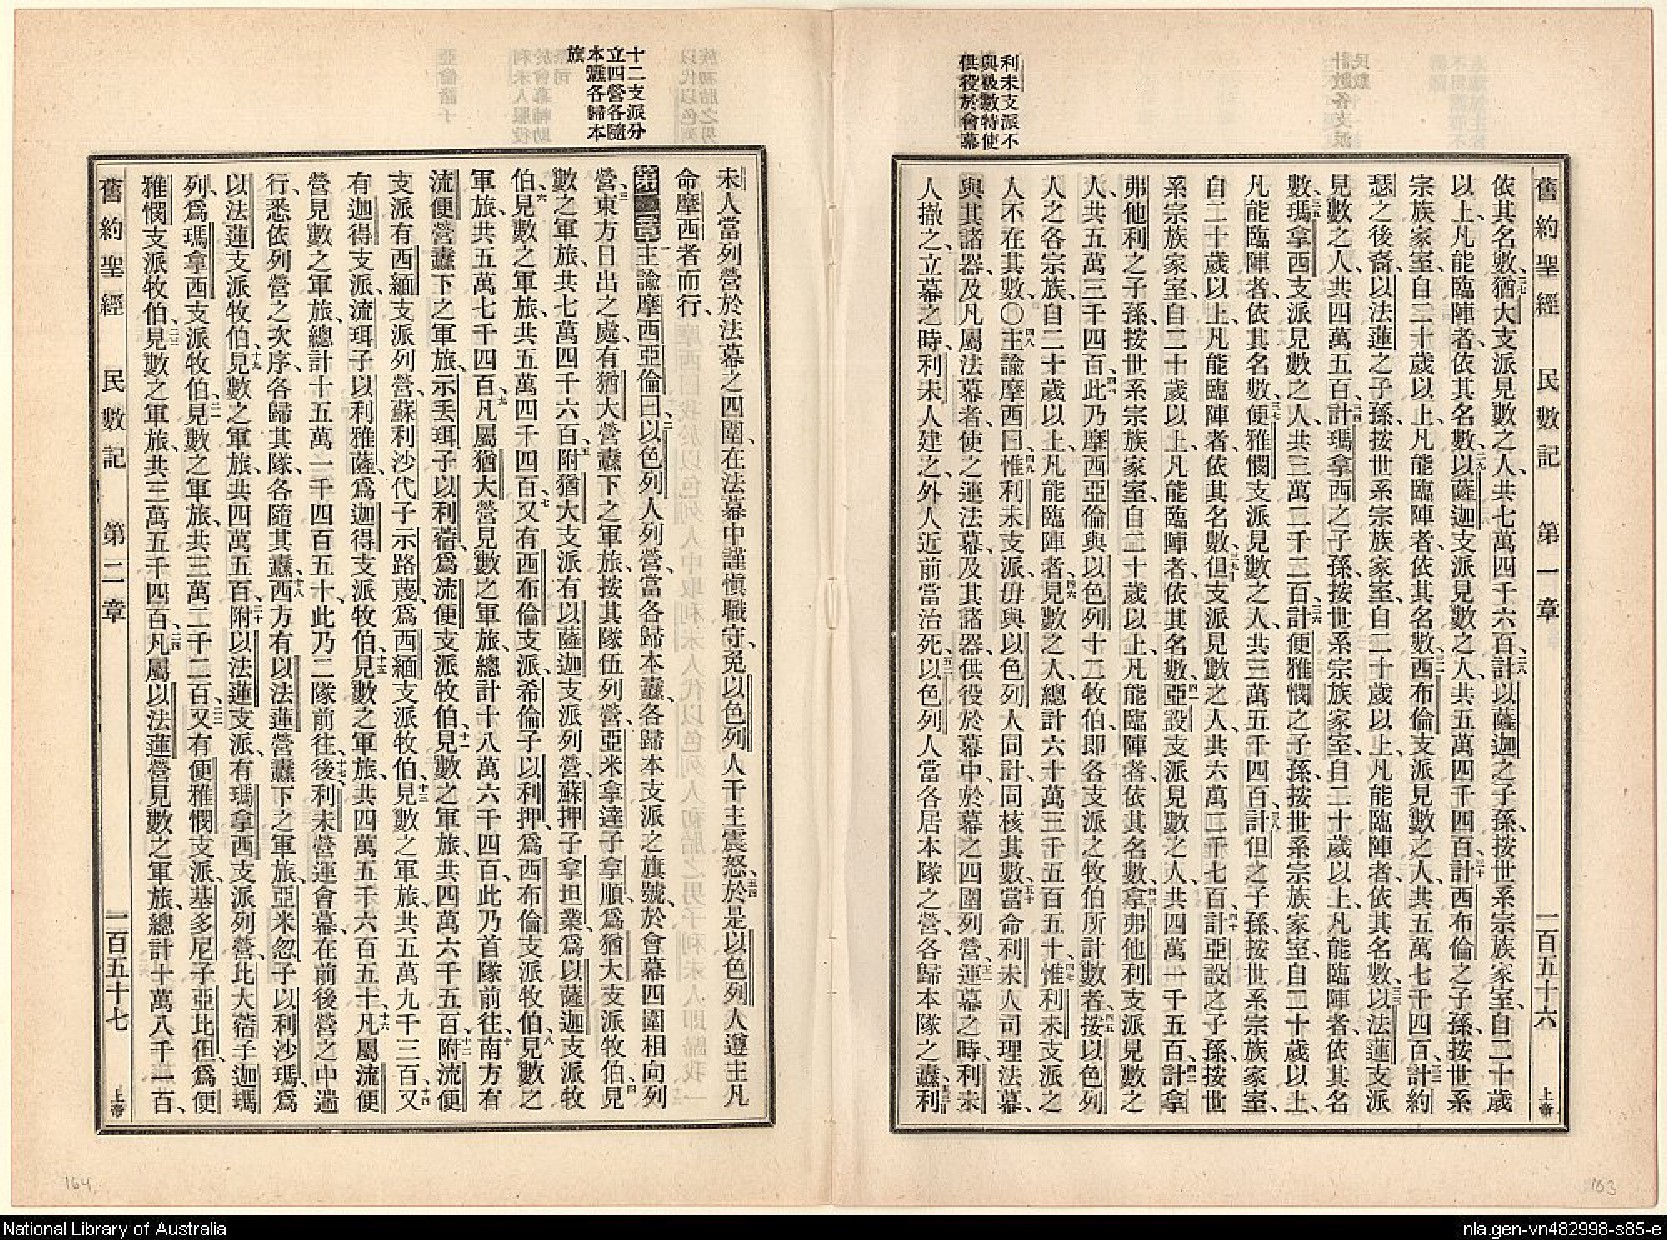 舊約聖經 民數記 第一章 一百五十六 上帝
依其名數、猶大支派見數之人、共七萬四千六百、計以薩迦之子孫、按世系宗族家室、自二十歲
以上、凡能臨陣者、依其名數、以薩迦支派見數之人、共五萬四千四百、計西布倫之子孫、按世系
宗族家室、自二十歲以上、凡能臨陣者、依其名數、西布倫支派見數之人、共五萬七千四百、計約
瑟之後裔、以法蓮之子孫、按世系宗族家室、自二十歲以上、凡能臨陣者、依其名數、以法蓮支派
見數之人、共四萬五百、計瑪拿西之子孫、按世系宗族家室、自二十歲以上、凡能臨陣者、依其名
數、瑪拿西支派見數之人、共三萬二千二百、計便雅憫之子孫、按世系宗族家室、自二十歲以上、
凡能臨陣者、依其名數、便雅憫支派見數之人、共三萬五千四百、計但之子孫、按世系宗族家室、
自二十歲以上、凡能臨陣者、依其名數、但支派見數之人、共六萬二千七百、計亞設之子孫、按世
系宗族家室、自二十歲以上、凡能臨陣者、依其名數、亞設支派見數之人、共四萬一千五百、計拿
弗他利之子孫、按世系宗族家室、自二十歲以上、凡能臨陣者、依其名數、拿弗他利支派見數之
人、共五萬三千四百、此乃摩西亞倫與以色列十二牧伯、即各支派之牧伯所計數者、按以色列
人之各宗族、自二十歲以上、凡能臨陣者、見數之人、總計六十萬三千五百五十、惟利未支派之
人、不在其數、〇主諭摩西曰、惟利未支派、毋與以色列人同計、同核其數、當命利未人司理法幕、
與其諸器、及凡屬法幕者、使之運法幕、及其諸器、供役於幕中、於幕之四圍列營、運幕之時、利未
人撤之、立幕之時、利未人建之、外人近前、當治死、以色列人當各居本隊之營、各歸本隊之纛、利
利未支派不
數特使
供役於會幕
未人當列營於法幕之四圍、在法幕中謹愼職守、免以色列人干主震怒、於是以色列人遵主凡
命摩西者而行、
主諭摩西亞倫曰、以色列人列營、當各歸本纛、各歸本支派之旗號、於會幕四圍相向列
營、東方日出之處、有猶大營纛下之軍旅、按其隊伍列營、亞米拿達子拿順、爲猶大支派牧伯、見
數之軍旅、共七萬四千六百、附猶大支派、有以薩迦支派列營、蘇押子拿坦業、爲以薩迦支派牧
伯、見數之軍旅、共五萬四千四百、又有西布倫支派、希倫子以利押、爲西布倫支派牧伯、見數之
軍旅、共五萬七千四百、凡屬猶大營見數之軍旅、總計十八萬六千四百、此乃首隊前往、南方有
流便營纛下之軍旅、示丟珥子以利蓿、爲流便支派牧伯、見數之軍旅、共四萬六千五百、附流便
支派有西緬支派列營、蘇利沙代子示路蔑、爲西緬支派牧伯、見數之軍旅、共五萬九千三百、又
有迦得支派、流珥子以利雅薩、爲迦得支派牧伯、見數之軍旅、共四萬五千六百五十、凡屬流便
營見數之軍旅、總計十五萬一千四百五十、此乃二隊前往、後利未營運會幕、在前後營之中、遄
行、悉依列營之次序、各歸其隊、各隨其纛、西方有以法蓮營纛下之軍旅、亞米忽子以利沙瑪、爲
以法蓮支派牧伯、見數之軍旅、共四萬五百、附以法蓮支派、有瑪拿西支派列營、比大蓿子迦瑪
列、爲瑪拿西支派牧伯、見數之軍旅、共三萬二千二百、又有便雅憫支派、基多尼子亞比但、爲便
雅憫支派牧伯、見數之軍旅、共三萬五千四百、凡屬以法蓮營見數之軍旅、總計十萬八千一百、
十二支派分
立四營各隨
本纛各歸本
旅
舊約聖經 民數記 第二章 一百五十七 上帝
164
163
National Library of Australia
nla.gen-vn482998-s85-e